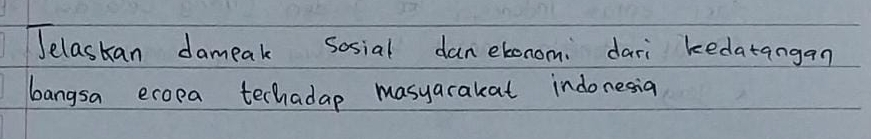 Jelaskan dampak sosial dan ekonomi dari kedatangan
bangsa eropa terhadap masyarakat indonesia